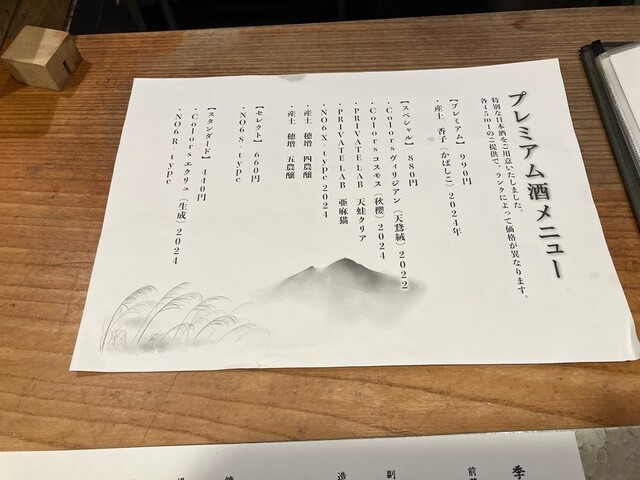 プレミアム酒メニュー
特別な日本酒をご用意いたしました。
各45mlのご提供で、ランクによって価格が異なります。
【プレミアム】 990円
・産土 香子（かばしこ）2024年
【スペシャル】 880円
・Colorsヴィリジアン（天鵞絨）2022
・Colorsコスモス（秋櫻）2024
・PRIVATE LAB 天蛙クリア
・PRIVATE LAB 亜麻猫
・NO6X-type2024
・産土 穂増 四農醸
・産土 穂増 五農醸
【セレクト】 660円
・NO6S-type
【スタンダード】 440円
・Colorsエクリュ（生成）2024
・NO6R-type
季
前
副
造